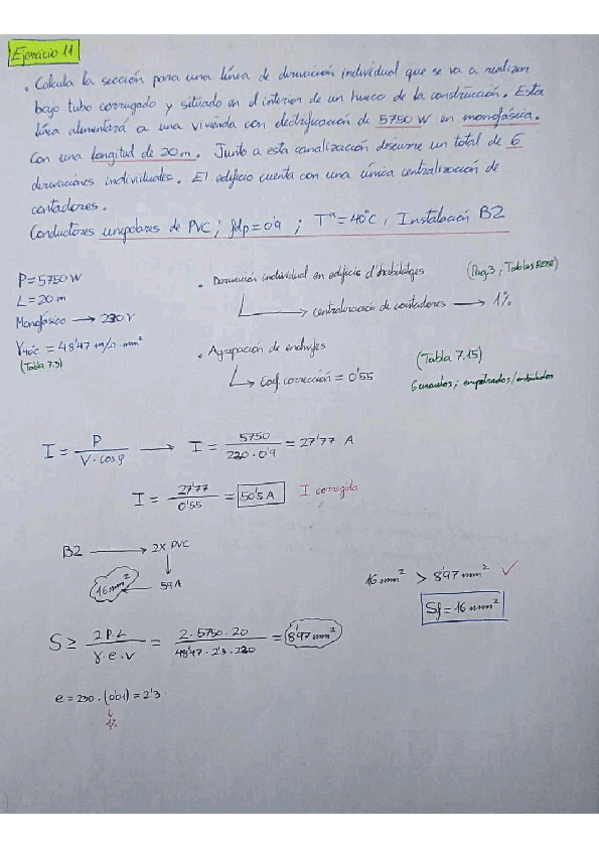 Ejercicio 11
• Calcula la sección para una línea de derivación individual que se va a realizar
bajo tubo corrugado y situado en el interior de un hueco de la construcción. Esta
línea alimentará a una vivienda con electrificación de 5750 W en monofásica.
Con una longitud de 20 m. Junto a esta canalización discurre un total de 6
derivaciones individuales. El edificio cuenta con una única centralización de
contadores.
Conductores unipolares de PVC; fdp = 0'9 ; Tª = 40°C, Instalación B2
P = 5750 W
L = 20 m
Monofásico → 230 V
γ40°C = 48'47 m/Ω mm²
(Tabla 7.3)
• Derivación individual en edificio d'habitatges (Pag 3, Tablas REBT)
centralización de contadores → 1%
• Agrupación de
Coef corrección = 0'55
(Tabla 7.15)
6 circuitos; empotrados/embutidos
I = P / V · cosφ → I = 5750 / 230 · 0'9 = 27'77 A
I = 27'77 / 0'55 = 50'5 A I corregida
B2 → 2x PVC
↓
16 mm² ← 59 A
16 mm² > 8'97 mm² ✓
Sf = 16 mm²
S ≥ 2·P·L / γ·e·v = 2 · 5750 · 20 / 48'47 · 2'3 · 230 = 8'97 mm²
e = 230 · (0'01) = 2'3
↓
1%